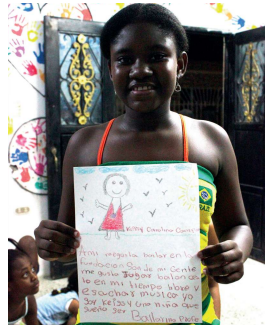 Kelly Carolina Caicedo
A mi me gusta bailar en la
fundacion Son de mi Gente
me gusta Jugar balon
to en mi tiempo libre y
escuchar musica yo
soy Kelly y una niña que
sueña ser Bailarina